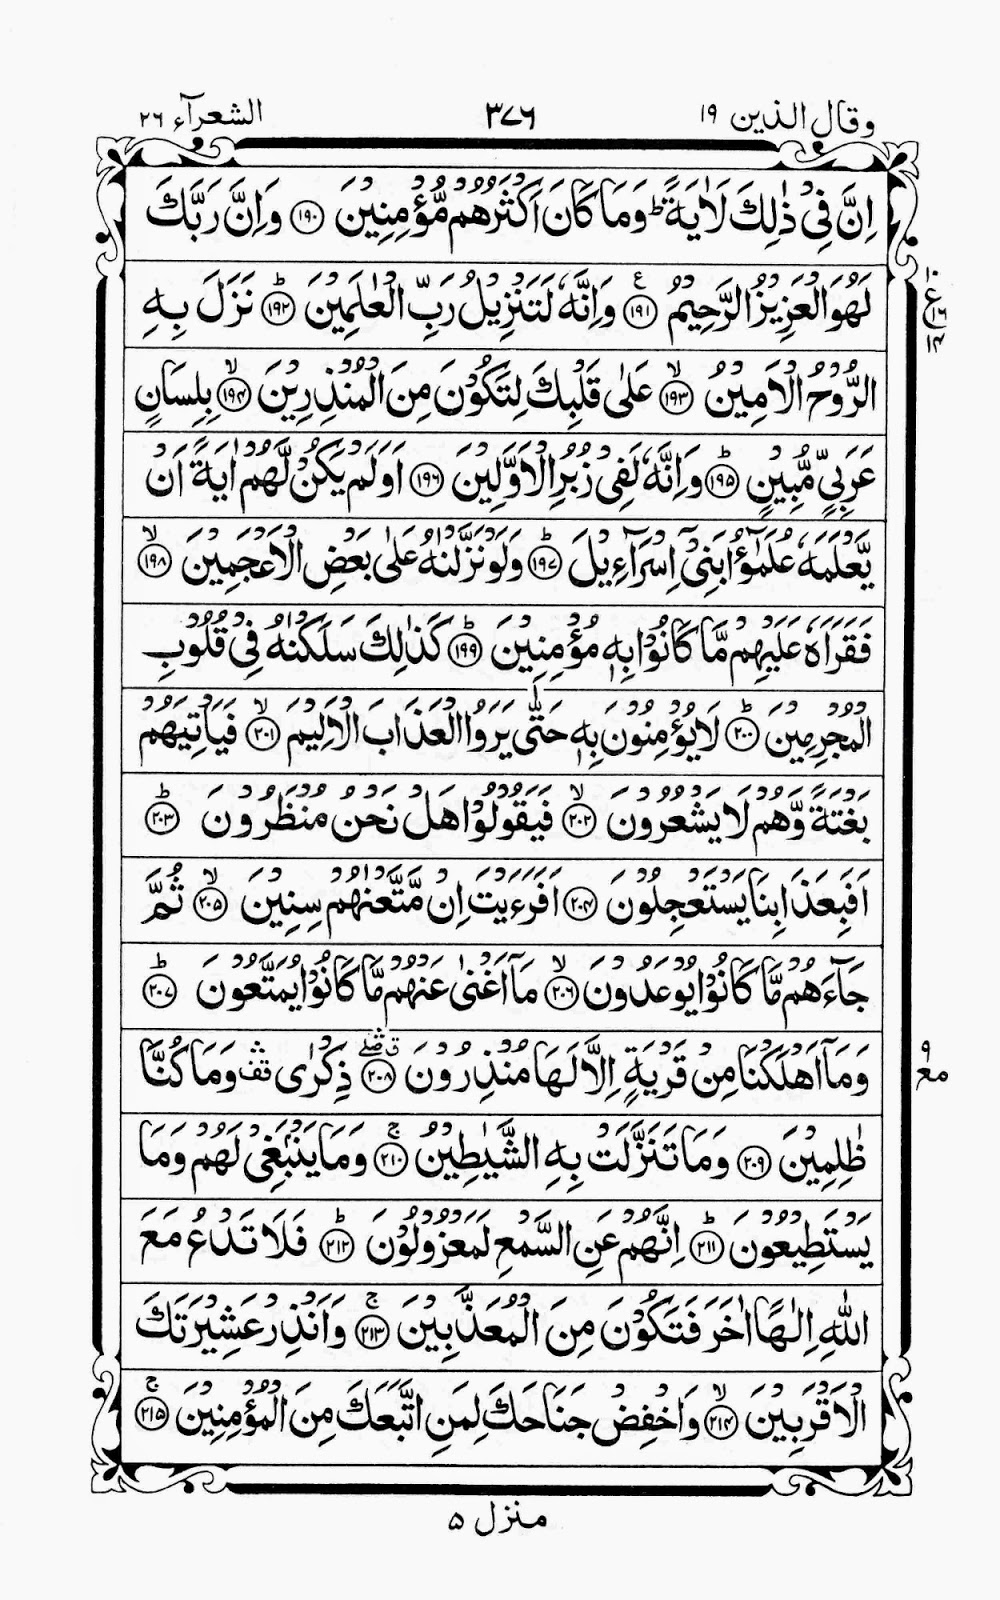 وقال الذين ١٩
٣٧٦
الشعرآء ٢٦
اِنَّ فِیْ ذٰلِكَ لَاٰیَةً ؕ وَمَا كَانَ اَكْثَرُهُمْ مُّؤْمِنِیْنَ ۝١٩٠ وَاِنَّ رَبَّكَ
لَهُوَ الْعَزِیْزُ الرَّحِیْمُ ۝١٩١ ع وَاِنَّهٗ لَتَنْزِیْلُ رَبِّ الْعٰلَمِیْنَ ۝١٩٢ؕ نَزَلَ بِهِ
الرُّوْحُ الْاَمِیْنُ ۝١٩٣ۙ عَلٰی قَلْبِكَ لِتَكُوْنَ مِنَ الْمُنْذِرِیْنَ ۝١٩٤ۙ بِلِسَانٍ
عَرَبِیٍّ مُّبِیْنٍ ۝١٩٥ؕ وَاِنَّهٗ لَفِیْ زُبُرِ الْاَوَّلِیْنَ ۝١٩٦ اَوَلَمْ یَكُنْ لَّهُمْ اٰیَةً اَنْ
یَّعْلَمَهٗ عُلَمٰٓؤُا بَنِیْۤ اِسْرَآءِیْلَ ۝١٩٧ؕ وَلَوْ نَزَّلْنٰهُ عَلٰی بَعْضِ الْاَعْجَمِیْنَ ۝١٩٨ۙ
فَقَرَاَهٗ عَلَیْهِمْ مَّا كَانُوْا بِهٖ مُؤْمِنِیْنَ ۝١٩٩ؕ كَذٰلِكَ سَلَكْنٰهُ فِیْ قُلُوْبِ
الْمُجْرِمِیْنَ ۝٢٠٠ؕ لَا یُؤْمِنُوْنَ بِهٖ حَتّٰی یَرَوُا الْعَذَابَ الْاَلِیْمَ ۝٢٠١ۙ فَیَاْتِیَهُمْ
بَغْتَةً وَّهُمْ لَا یَشْعُرُوْنَ ۝٢٠٢ۙ فَیَقُوْلُوْا هَلْ نَحْنُ مُنْظَرُوْنَ ۝٢٠٣ؕ
اَفَبِعَذَابِنَا یَسْتَعْجِلُوْنَ ۝٢٠٤ اَفَرَءَیْتَ اِنْ مَّتَّعْنٰهُمْ سِنِیْنَ ۝٢٠٥ۙ ثُمَّ
جَآءَهُمْ مَّا كَانُوْا یُوْعَدُوْنَ ۝٢٠٦ۙ مَاۤ اَغْنٰی عَنْهُمْ مَّا كَانُوْا یُمَتَّعُوْنَ ۝٢٠٧ؕ
وَمَاۤ اَهْلَكْنَا مِنْ قَرْیَةٍ اِلَّا لَهَا مُنْذِرُوْنَ ۝٢٠٨ ق صلے ذِكْرٰی قف وَمَا كُنَّا
ظٰلِمِیْنَ ۝٢٠٩ وَمَا تَنَزَّلَتْ بِهِ الشَّیٰطِیْنُ ۝٢١٠ۚ وَمَا یَنْۢبَغِیْ لَهُمْ وَمَا
یَسْتَطِیْعُوْنَ ۝٢١١ؕ اِنَّهُمْ عَنِ السَّمْعِ لَمَعْزُوْلُوْنَ ۝٢١٢ؕ فَلَا تَدْعُ مَعَ
اللّٰهِ اِلٰهًا اٰخَرَ فَتَكُوْنَ مِنَ الْمُعَذَّبِیْنَ ۝٢١٣ۚ وَاَنْذِرْ عَشِیْرَتَكَ
الْاَقْرَبِیْنَ ۝٢١٤ۙ وَاخْفِضْ جَنَاحَكَ لِمَنِ اتَّبَعَكَ مِنَ الْمُؤْمِنِیْنَ ۝٢١٥ۚ
١٠
ع
١٦
١٤
٩
مع
منزل ٥